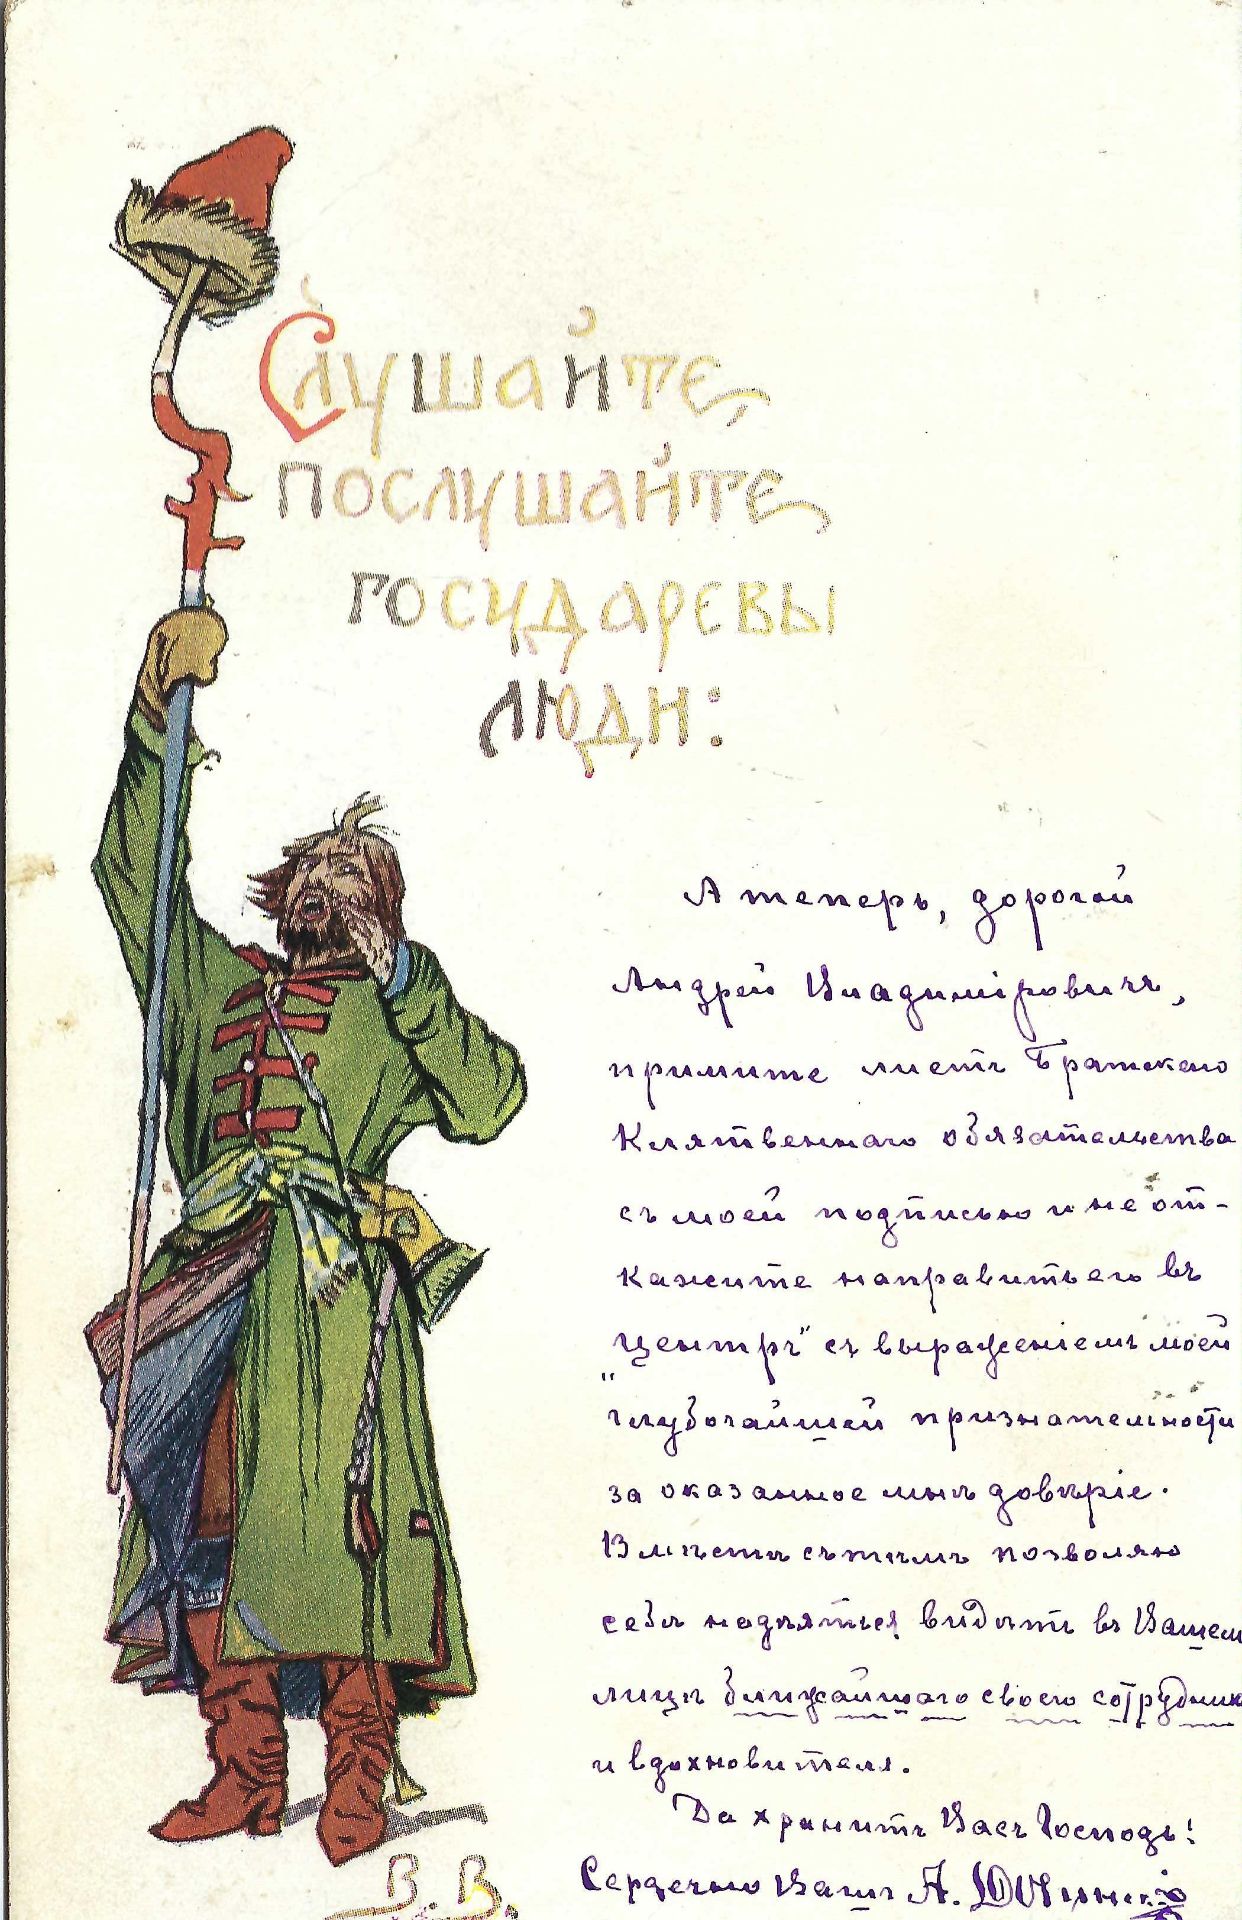 Слушайте,
послушайте
государевы
люди:
А теперь, дорогой
Андрей Владимiровичъ,
примите листъ Братскаго
Клятвеннаго обязательства
съ моей подписью и не от-
кажите направить его въ
"Центръ" съ выраженiемъ моей
глубочайшей признательности
за оказанное мнѣ довѣрiе.
Вмѣстѣ съ тѣмъ позволяю
себѣ надѣяться видѣть въ Вашем
лицѣ ближайшаго своего сотрудник
и вдохновителя.
Да хранитъ Васъ Господь!
Сердечно Вашъ А.
В. В.